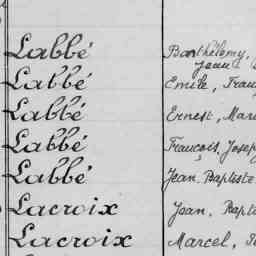 Labbé Barthélemy,
Jean
Labbé Emile,
Labbé Ernest,
Labbé François, Joseph
Labbé Jean, Baptiste
Lacroix Jean,
Lacroix Marcel,